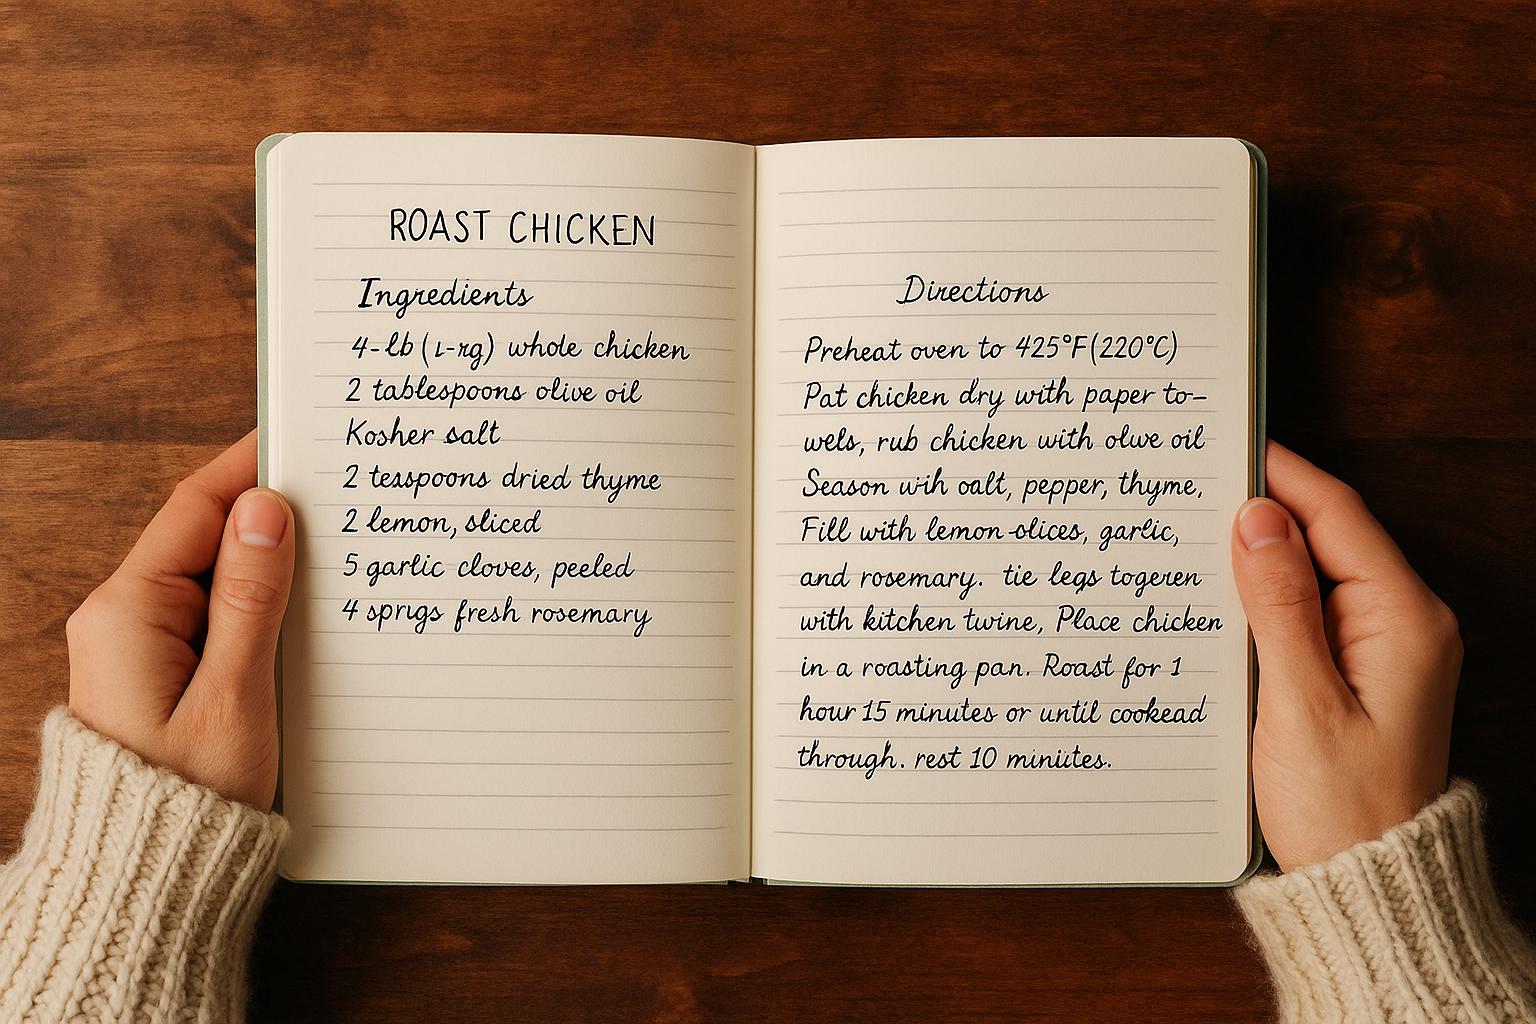 ROAST CHICKEN
Ingredients
4-lb (ι-ng) whole chicken
2 tablespoons olive oil
Kosher salt
2 teaspoons dried thyme
2 lemon, sliced
5 garlic cloves, peeled
4 sprigs fresh rosemary
Directions
Preheat oven to 425°F(220°C)
Pat chicken dry with paper to–
wels, rub chicken with olwe oil
Season wih oalt, pepper, thyme,
Fill with lemon-slices, garlic,
and rosemary. tie legs togeren
with kitchen twine, Place chicken
in a roasting pan. Roast for 1
hour 15 minutes or until cookead
through. rest 10 miniites.